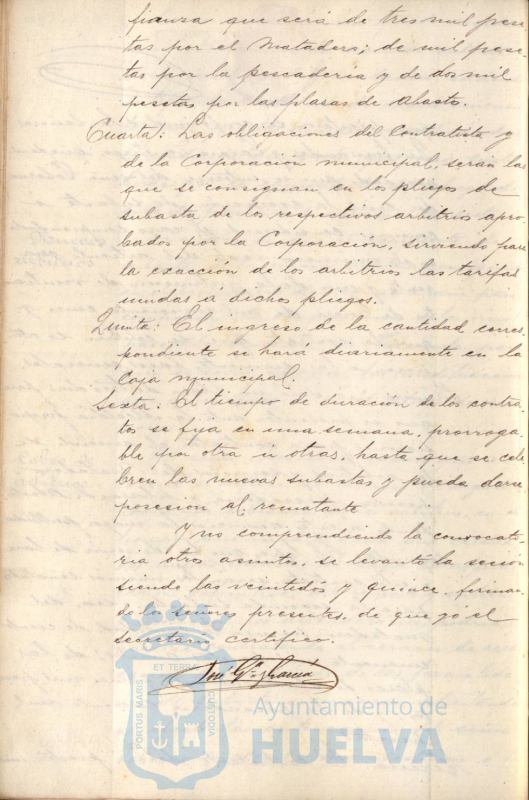 fianza que será de tres mil pese
tas por el Matadero; de mil pese-
tas por la pescaderia y de dos mil
pesetas por las plazas de Abasto.
Cuarta: Las obligaciones del Contratista y
de la Corporación municipal, serán las
que se consignan en los pliegos de
subasta de los respectivos arbitrios apro-
bados por la Corporación, sirviendo para
la exacción de los arbitrios las tarifas
unidas á dichos pliegos.
Quinta: El ingreso de la cantidad corres
pondiente se hará diariamente en la
Caja municipal.
Sexta: El tiempo de duración de los contra-
tos se fija en una semana, prorroga
ble por otra ú otras, hasta que se cele
bren las nuevas subastas y pueda darse
posesion al rematante
Y no comprendiendo la convocato
ria otros asuntos, se levantó la sesión
siendo las veintidós y quince, firman-
do los señores presentes, de que yó el
secretario certifico.
José García
ET TERRÆ
PORTUS MARIS
CUSTODIA
Ayuntamiento de
HUELVA